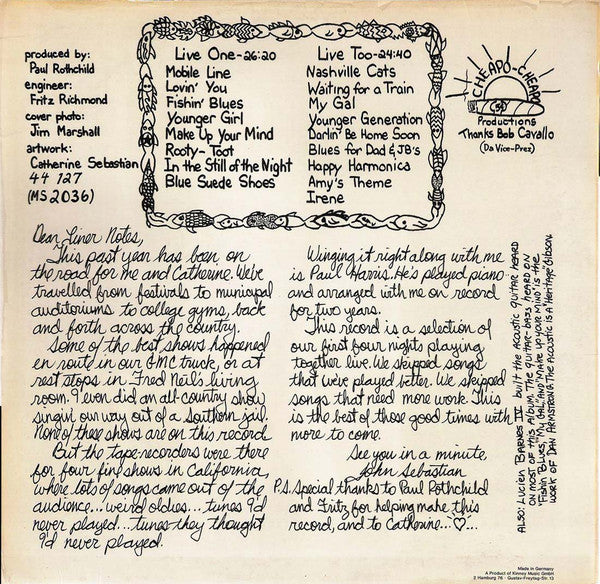 produced by:
Paul Rothchild
engineer:
Fritz Richmond
cover photo:
Jim Marshall
artwork:
Catherine Sebastian
44 127
(MS 2036)
Live One-26:20
Mobile Line
Lovin' You
Fishin' Blues
Younger Girl
Make Up Your Mind
Rooty-Toot
In the Still of the Night
Blue Suede Shoes
Live Too-24:40
Nashville Cats
Waiting for a Train
My Gal
Younger Generation
Darlin' Be Home Soon
Blues for Dad & JB's
Happy Harmonica
Amy's Theme
Irene
CHEAPO-CHEAPO
Productions
Thanks Bob Cavallo
(Da Vice-Prez)
Dear Liner Notes,
This past year has been on
the road for me and Catherine. We've
travelled from festivals to municipal
auditoriums to college gyms, back
and forth across the country.
Some of the best shows happened
en route in our GMC truck, or at
rest stops in Fred Neil's living
room. I even did an all-country show
singin' our way out of a Southern jail.
None of these shows are on this record
But the tape-recorders were there
for four fine shows in California
where lots of songs came out of the
audience...weird oldies...tunes I'd
never played...tunes they thought
I'd never played.
Winging it right along with me
is Paul Harris. He's played piano
and arranged with me on record
for two years.
This record is a selection of
our first four nights playing
together live. We skipped songs
that we've played better. We skipped
songs that need more work. This
is the best of those good times with
more to come.
See you in a minute,
John Sebastian
P.S. Special thanks to Paul Rothchild
and Fritz for helping make this
record, and to Catherine...♡...
ALSO: LUCIEN BARNES IV built the acoustic guitar HEARD
ON MOST OF THIS ALBUM. THE GUITAR-BASS HEARD ON
"Fishin' BLUES", "MY GAL", AND "MAKE UP YOUR MIND" is the
WORK OF DAN ARMSTRONG. THE ACOUSTIC IS A "HERITAGE" GIBSON.
Made in Germany
A Product of Kinney Music GmbH
2 Hamburg 76 · Gustav-Freytag-Str. 13